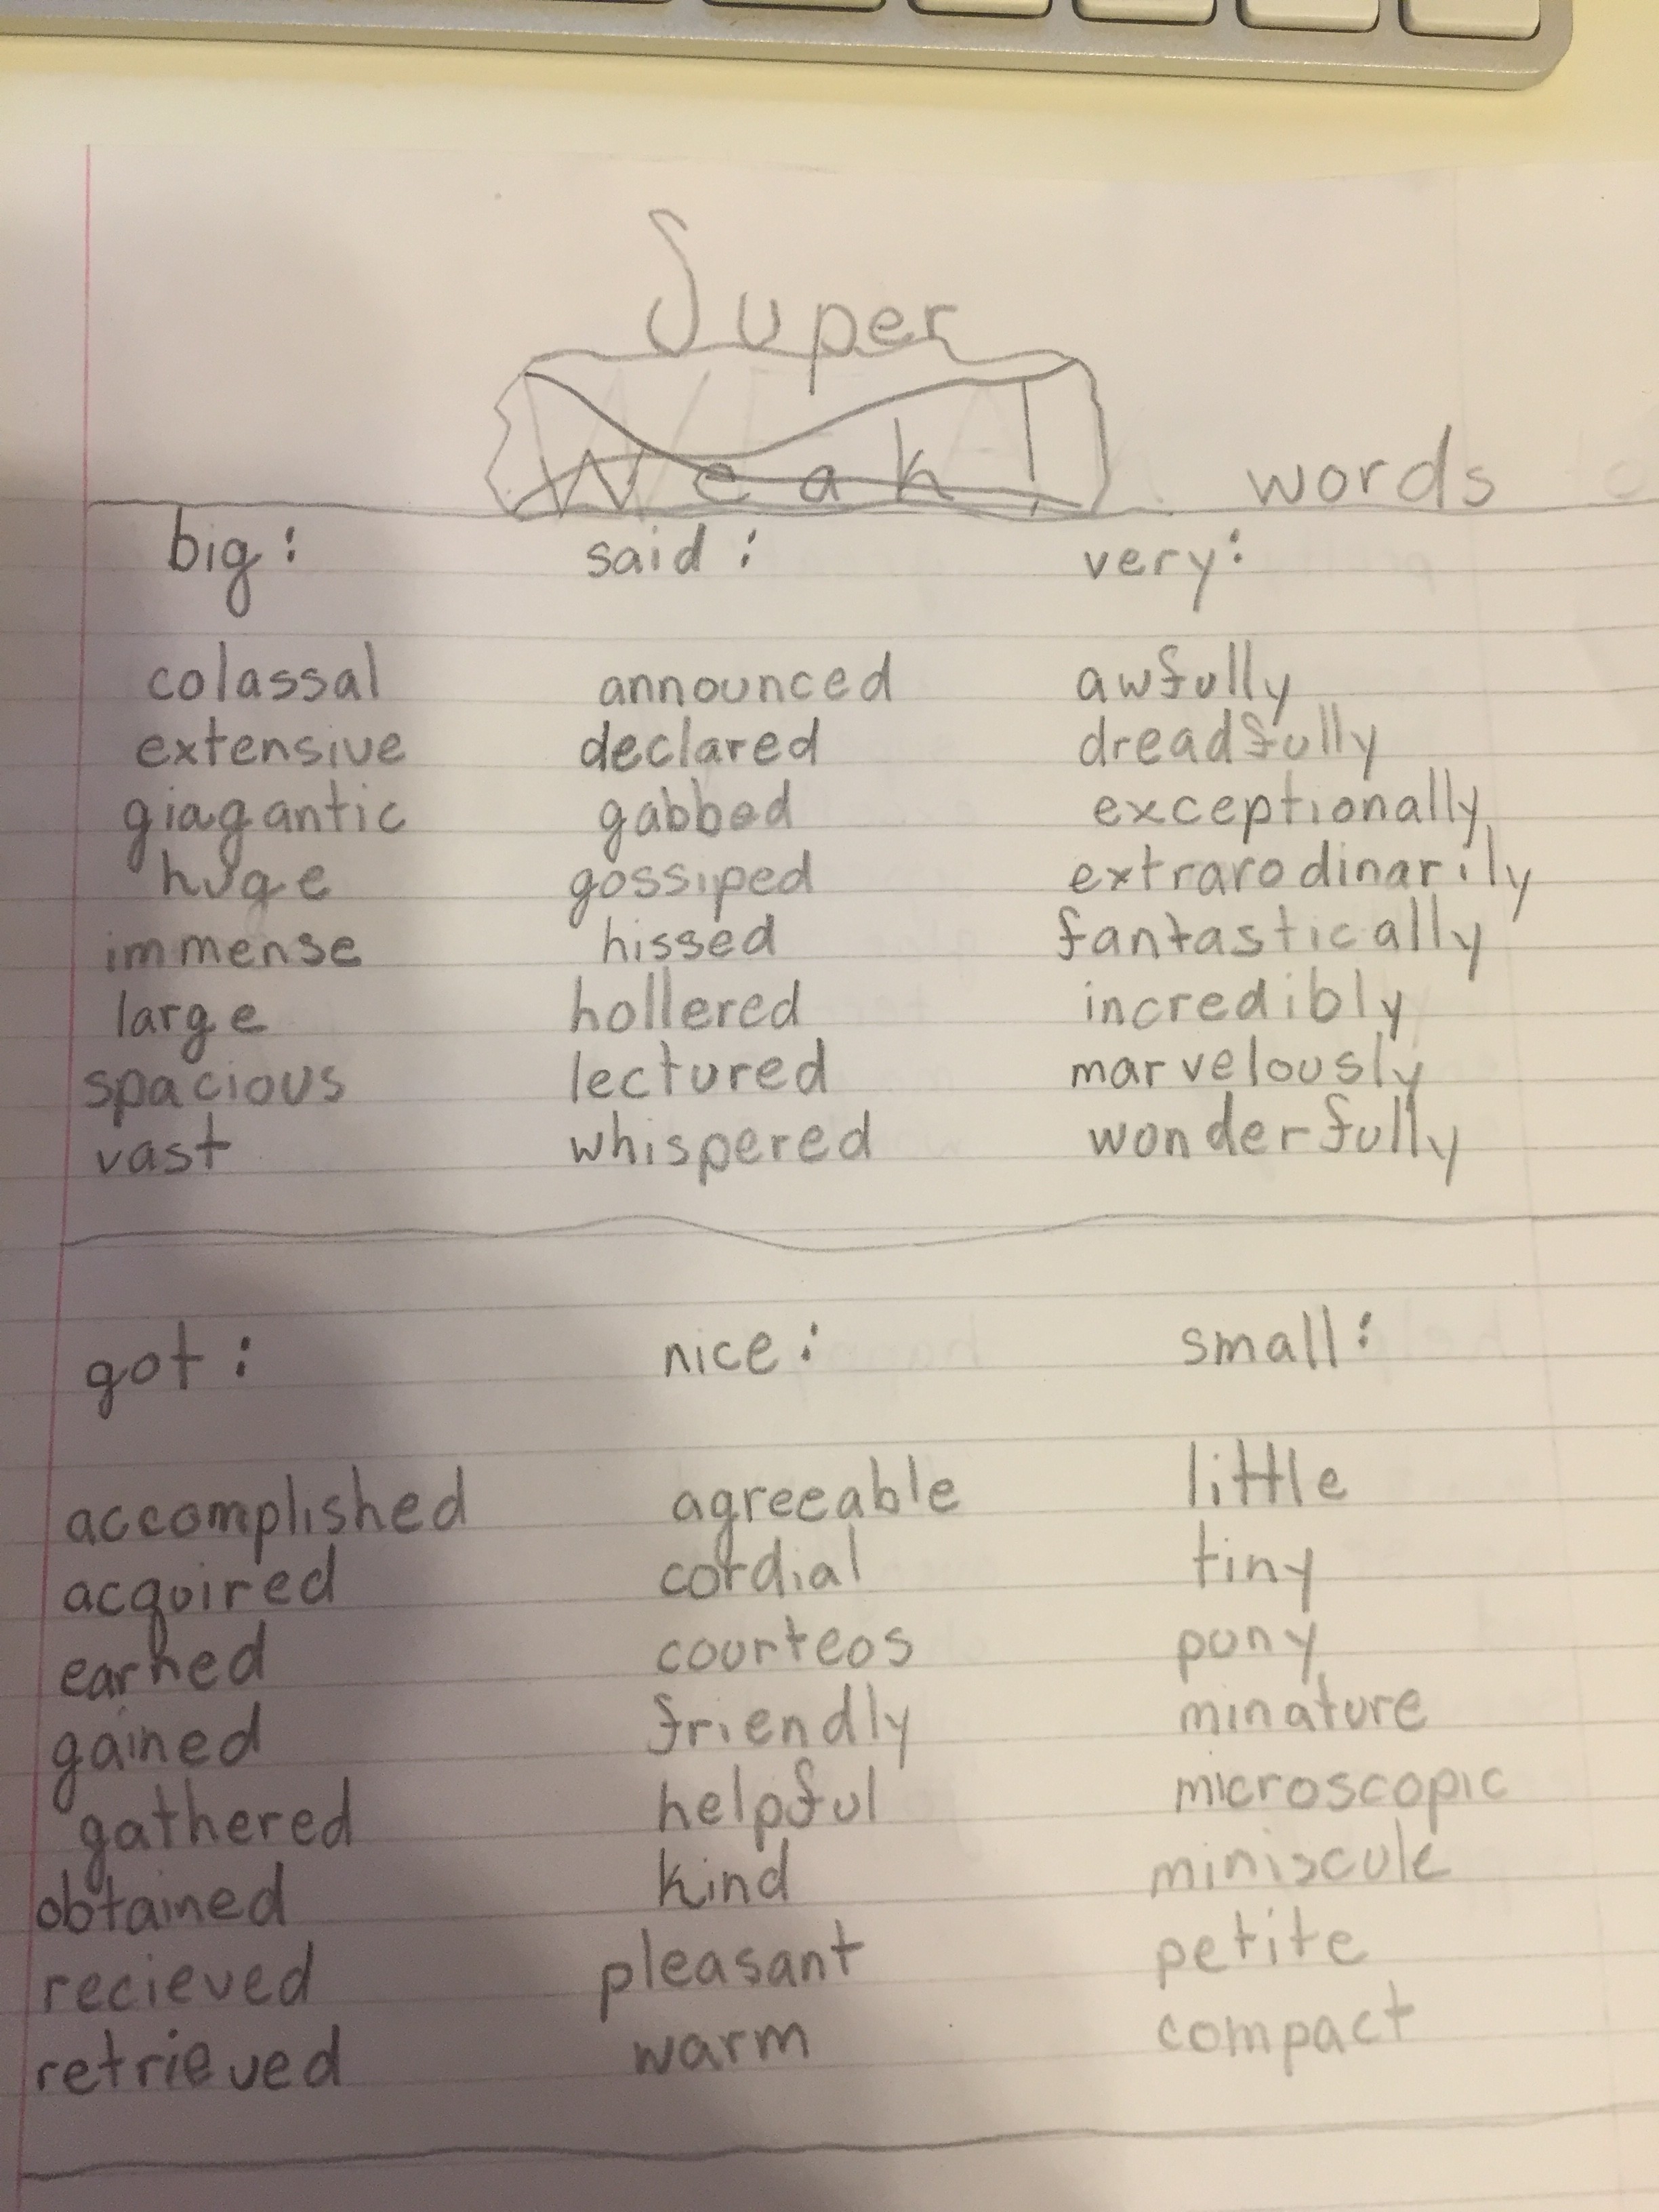 Super
Weak words
big: said: very:
colassal announced awfully
extensive declared dreadfully
giagantic gabbed exceptionally
huge gossiped extrarodinarily
immense hissed fantastically
large hollered incredibly
spacious lectured marvelously
vast whispered wonderfully
got: nice: small:
accomplished agreeable little
acquired cordial tiny
earned courteos pony
gained friendly minature
gathered helpful microscopic
obtained kind miniscule
recieved pleasant petite
retrieved warm compact